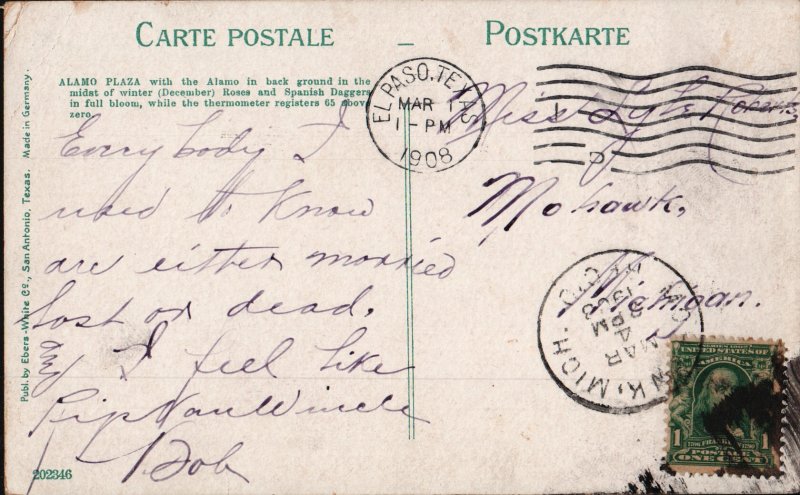 CARTE POSTALE – POSTKARTE
ALAMO PLAZA with the Alamo in back ground in the
midst of winter (December) Roses and Spanish Daggers
in full bloom, while the thermometer registers 65 above
zero.
Every body I
used to know
are either married
lost or dead.
I feel like
Rip Van Wincle
Bob
EL PASO, TEXAS
MAR 1
1 - PM
1908
Miss Lyle
Mohawk,
Michigan.
MICH.
REC'D.
MAR
4
8 PM
1908
UNITED STATES OF
AMERICA
1 FRANKLIN 1
POSTAGE
ONE CENT
Publ. by Ebers-White Co., San Antonio, Texas. Made in Germany.
202346